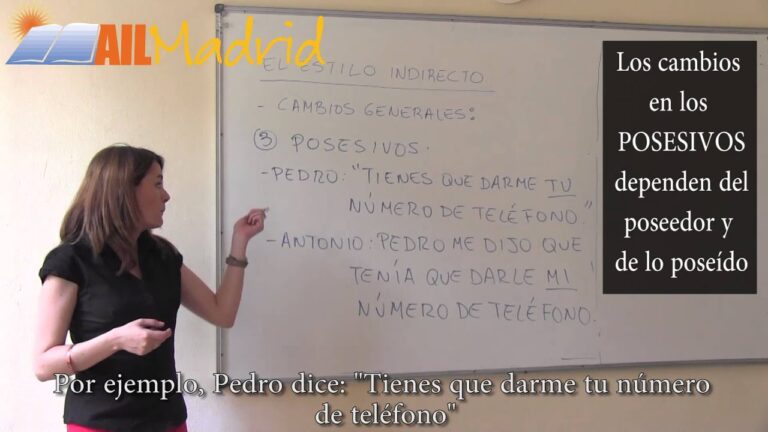 AILMadrid
EL ESTILO INDIRECTO
- CAMBIOS GENERALES:
③ POSESIVOS.
- PEDRO: "TIENES QUE DARME TU
NÚMERO DE TELÉFONO."
- ANTONIO: PEDRO ME DIJO QUE
TENÍA QUE DARLE MI
NÚMERO DE TELÉFONO.
Los cambios
en los
POSESIVOS
dependen del
poseedor y
de lo poseído
Por ejemplo, Pedro dice: "Tienes que darme tu número
de teléfono"